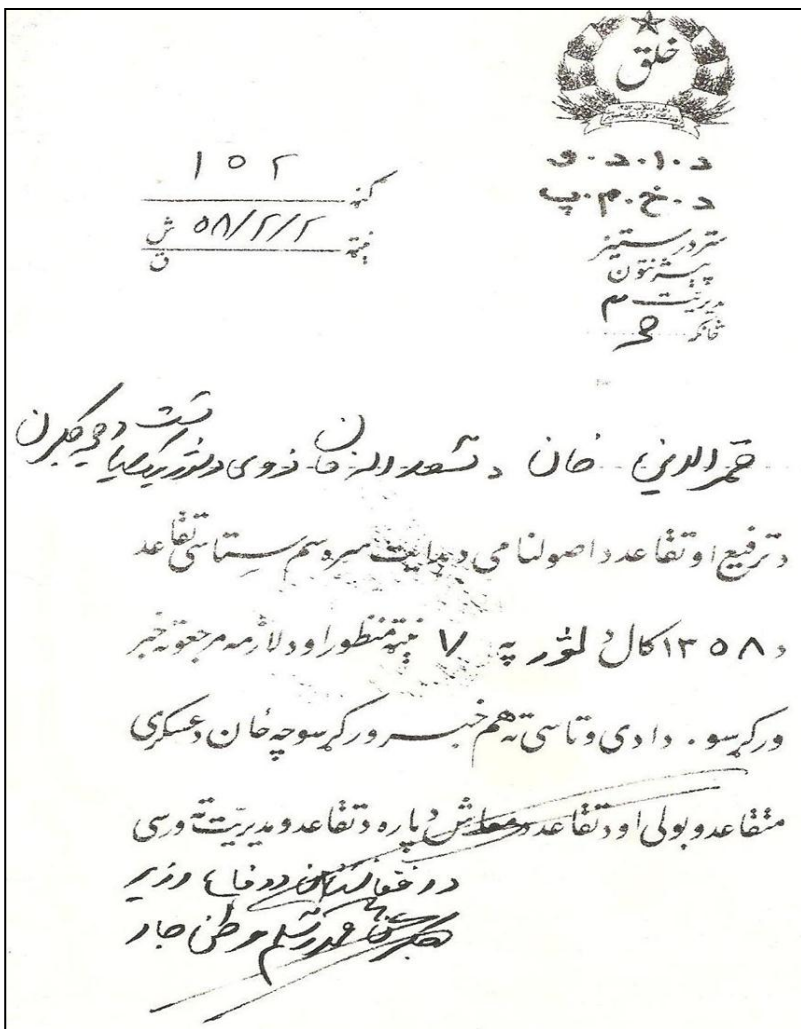 خلق
د.ا.د.و
د.خ.م.پ
ستردرستیز
پیژنتون
مدیریت ۳
څانګه
ګڼه ۱۵۲
نېټه ۵۸/۲/۲ ش
ق
قمرالدین خان د خان زوی
د ترفیع او تقاعد د اصولنامی د هدایت سره سم ستاسی تقاعد
د ۱۳۵۸ کال د ثور په ۷ نېټه منظور او د لازمه مرجعو ته خبر
ورکړ سو. دادی و تاسی ته هم خبر ورکړ سو چه ځان د عسکری
متقاعد و بولی او د تقاعد د معاش د پاره د تقاعد و مدیریت ته ورسی
د افغانستان د دفاع وزیر
محمد اسلم وطنجار